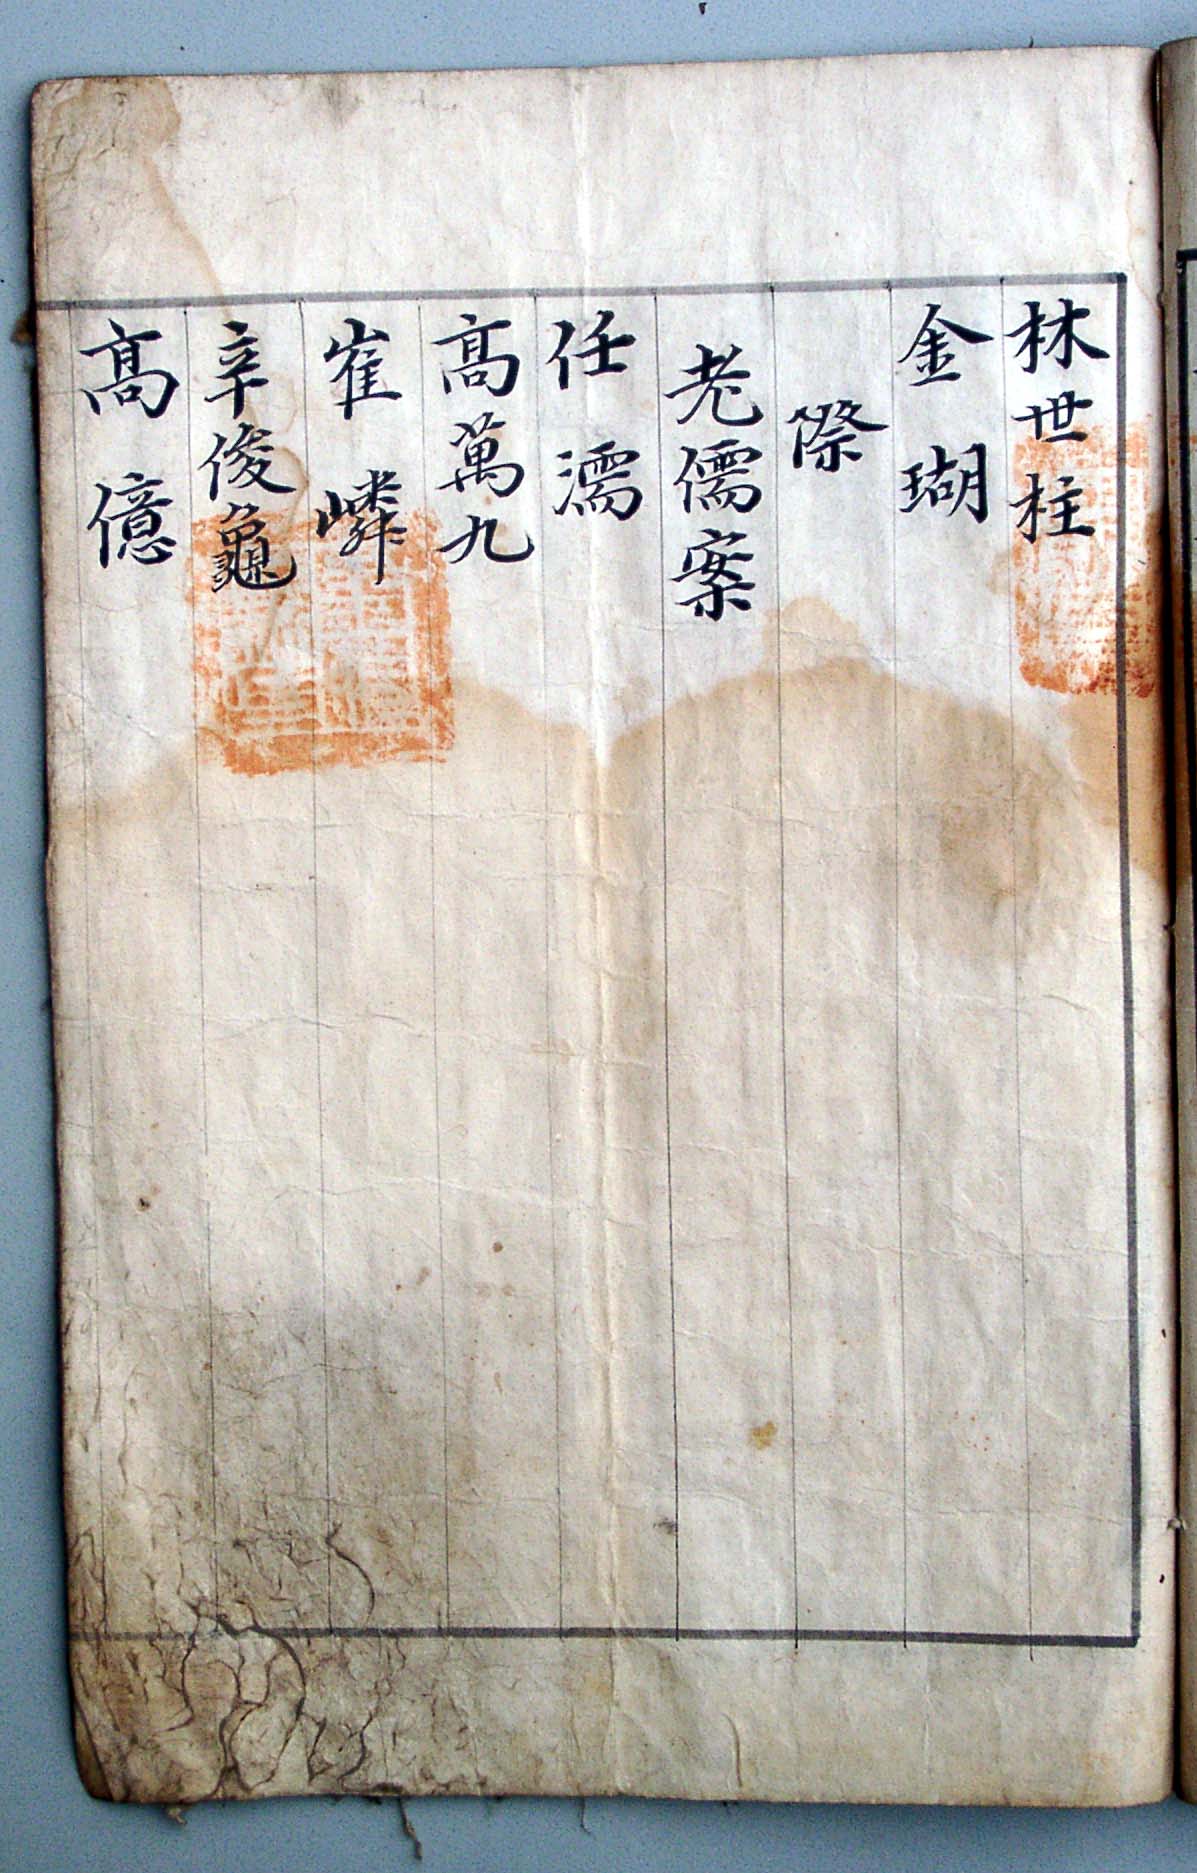 林世柱
金瑚
際
老儒案
任濡
高萬九
崔嶙
辛俊龜
高億